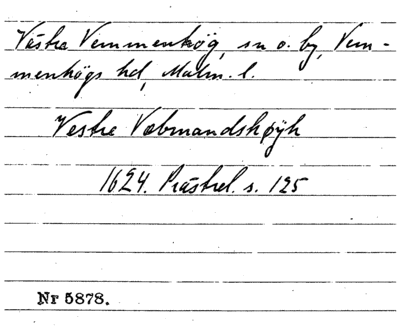 Västra Vemmenhög, sn o. by, Vem-
menhögs hd, Malm. l.
Vestre Vebmandshøyh
1624. Prästrel. s. 125
Nr 5878.